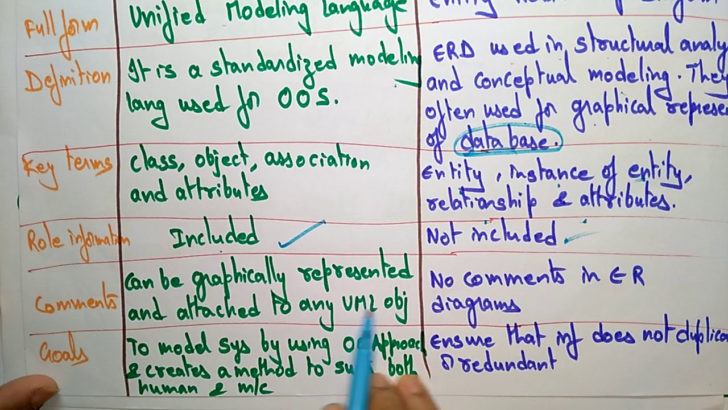 Full form
Unified Modeling language
Definition
It is a standardized modeling
lang used for OOS.
ERD used in structural analy
and conceptual modeling. They
often used for graphical represe
of database.
Key terms
class, object, association
and attributes
Entity, instance of entity,
relationship & attributes.
Role information
Included
Not included
Comments
Can be graphically represented
and attached to any UML obj
No comments in ER
diagrams
Goals
To model sys by using OO Approac
& creates a method to both
human & m/c
Ensure that inf does not duplica
redundant